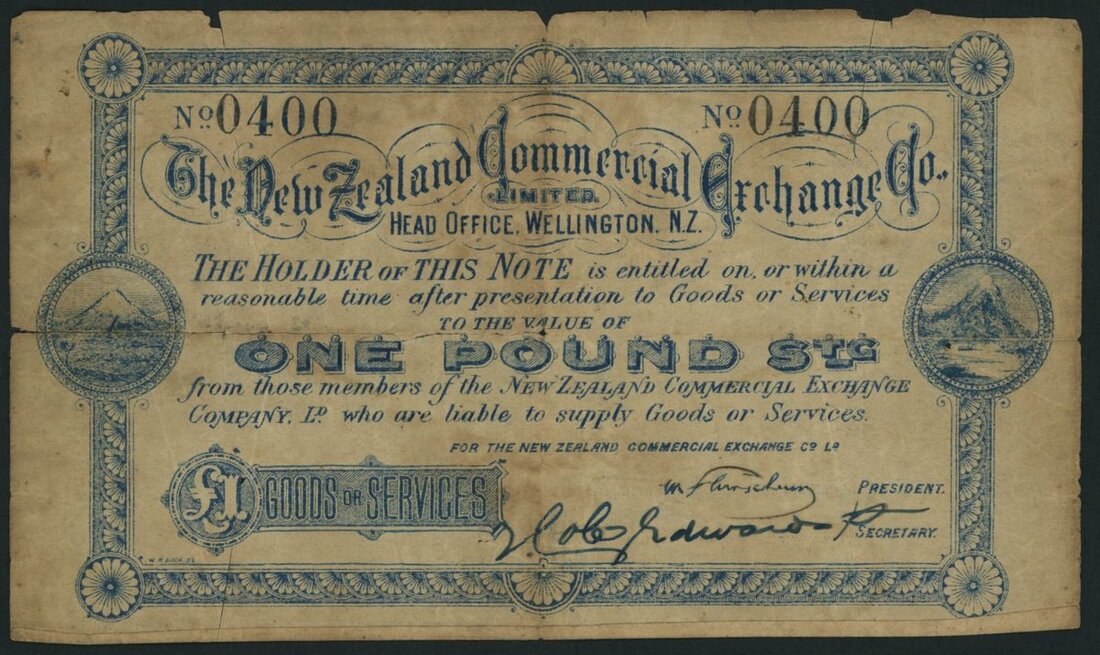 No. 0400 No. 0400
The New Zealand Commercial Exchange Co.,
LIMITED.
HEAD OFFICE, WELLINGTON, N.Z.
THE HOLDER OF THIS NOTE is entitled on, or within a
reasonable time after presentation to Goods or Services
TO THE VALUE OF
ONE POUND STG
from those members of the NEW ZEALAND COMMERCIAL EXCHANGE
COMPANY, LD who are liable to supply Goods or Services.
FOR THE NEW ZEALAND COMMERCIAL EXCHANGE CO LD
£1 GOODS OR SERVICES
PRESIDENT.
Edwards
SECRETARY.